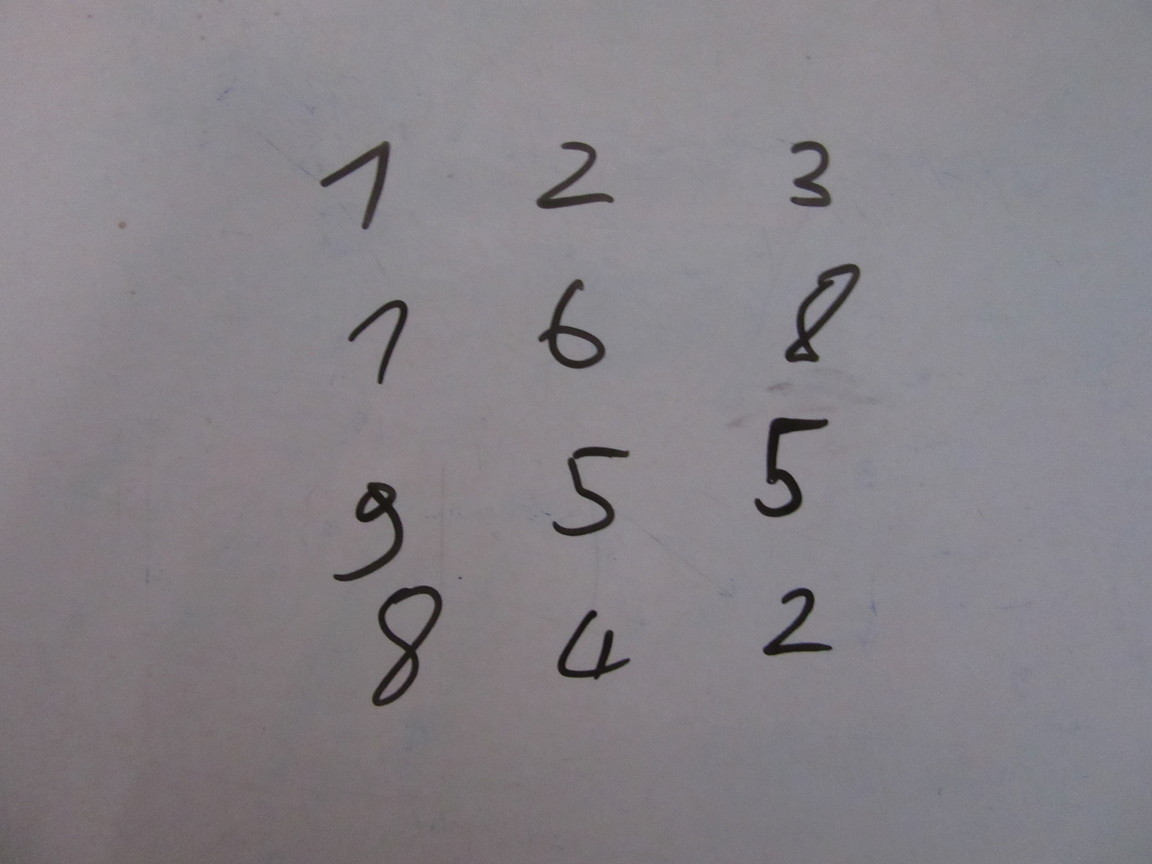 1 2 3
1 6 8
9 5 5
8 4 2